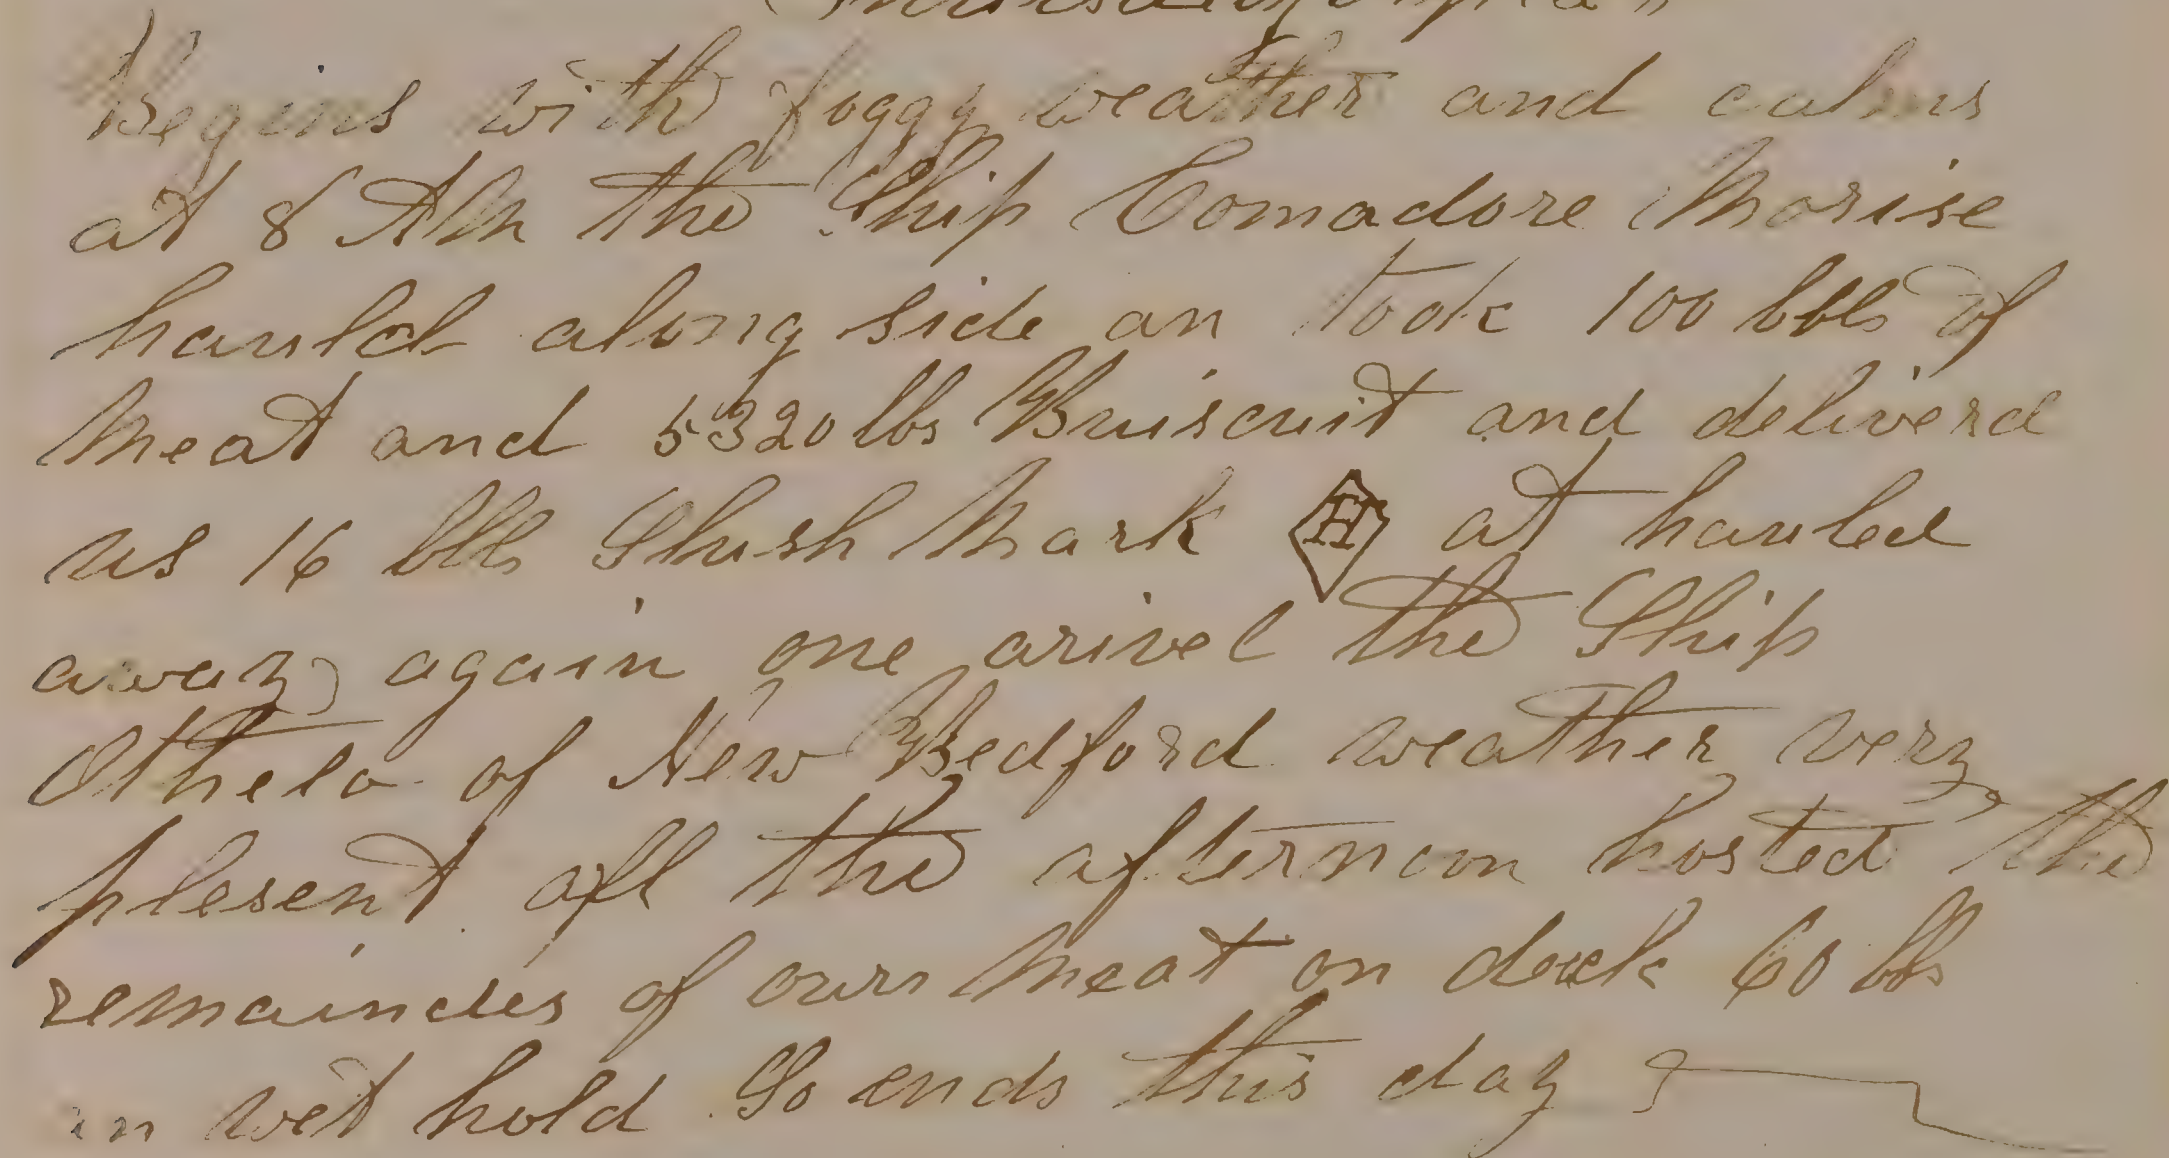 Begins with foggy weather and calms
at 8 AM the Ship Comadore Morise
hauld along side an took 100 bbls of
Meat and 5320 lbs Bruiscuit and deliverd
us 16 bbls Slush Mark H at hauled
away again one arivel the Ship
Othelo of New Bedford weather very
plesent all the afternoon hosted the
remaindes of our Meat on deck 60 bbs
in wet hold So ends this day